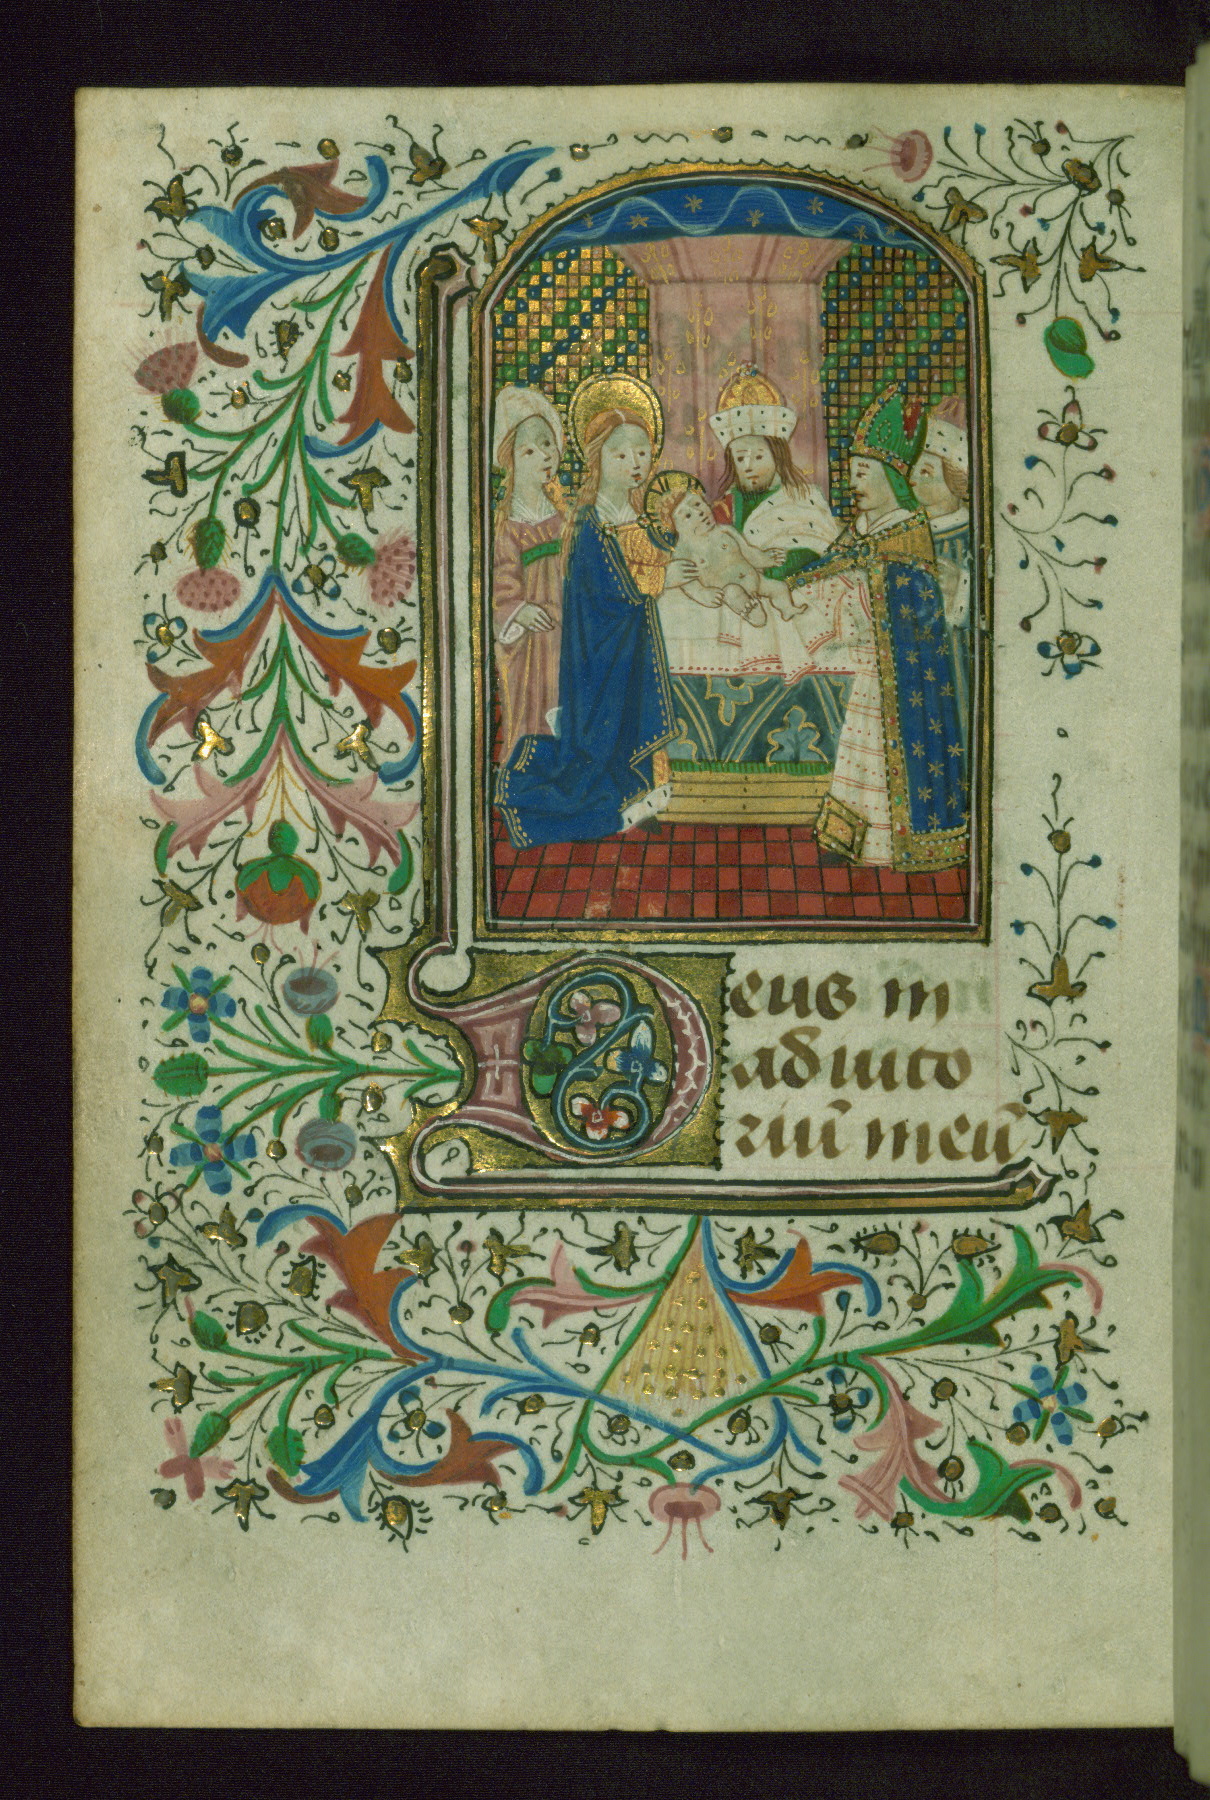 Deus in
adiuto
riū meū